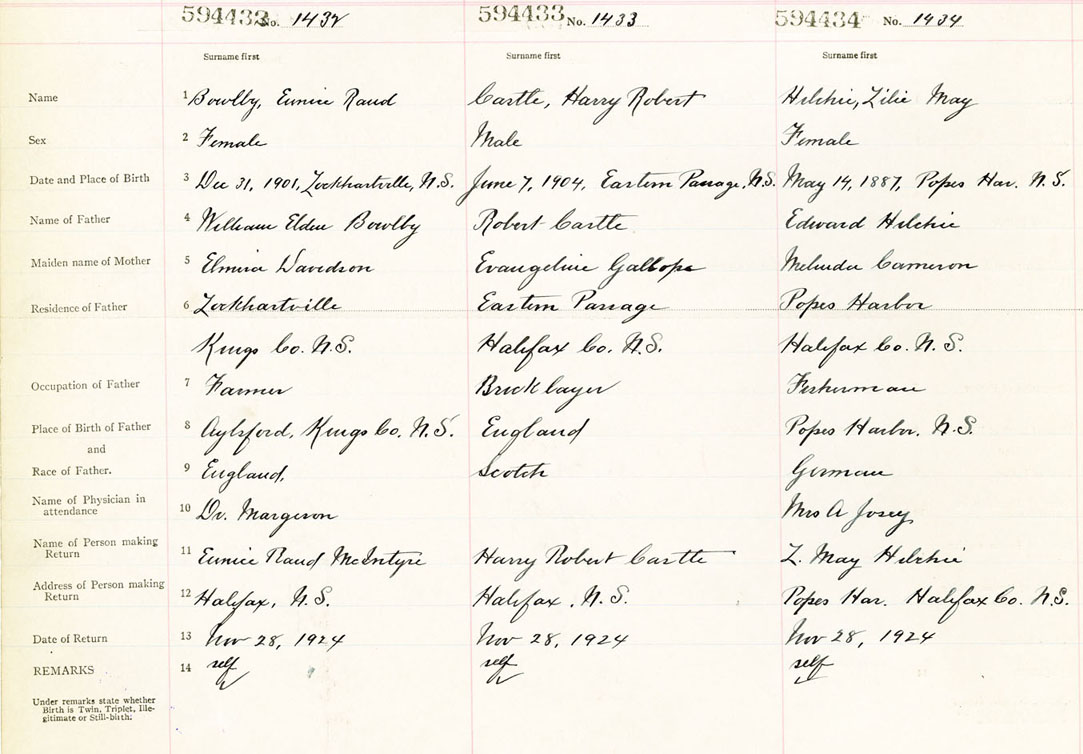 594432 No. 1432 594433 No. 1433 594434 No. 1434
Surname first Surname first Surname first
Name 1 Bowlby, Eunice Raud Castle, Harry Robert Hilchie, Zilie May
Sex 2 Female Male Female
Date and Place of Birth 3 Dec 31, 1901, Lockhartville, N.S. June 7, 1904, Eastern Passage, N.S. May 14, 1887, Popes Har. N.S.
Name of Father 4 William Elden Bowlby Robert Castle Edward Hilchie
Maiden name of Mother 5 Elmira Davidson Evangeline Melinda Cameron
Residence of Father 6 Lockhartville Eastern Passage Popes Harbor
Kings Co. N.S. Halifax Co. N.S. Halifax Co. N.S.
Occupation of Father 7 Farmer Bricklayer Fisherman
Place of Birth of Father 8 Aylsford, Kings Co. N.S. England Popes Harbor, N.S.
and
Race of Father. 9 England, Scotch German
Name of Physician in
attendance 10 Dr. Margeson Mrs A Josey
Name of Person making
Return 11 Eunice Raud McIntyre Harry Robert Castle Z. May Hilchie
Address of Person making
Return 12 Halifax, N.S. Halifax, N.S. Popes Har. Halifax Co. N.S.
Date of Return 13 Nov 28, 1924 Nov 28, 1924 Nov 28, 1924
REMARKS 14 self self self
Under remarks state whether
Birth is Twin, Triplet, Ille-
gitimate or Still-birth.